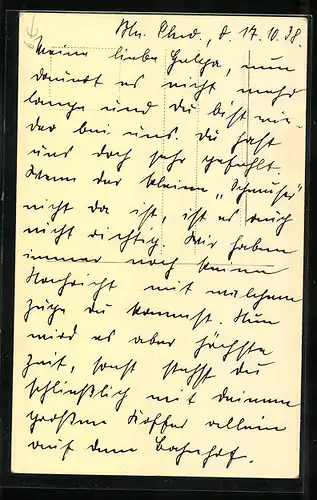 Bln. Chrl., d. 17.10.38.
Meine liebe Helga, nun
dauert es nicht mehr
lange und du bist wie-
der bei uns. Du hast
uns doch sehr gefehlt.
Wenn der kleine „Schmuser"
nicht da ist, ist es auch
nicht richtig. Wir haben
immer noch keine
Nachricht mit welchem
Zuge du kommst. Nun
wird es aber höchste
Zeit, sonst stehst du
schließlich mit deinem
großen Koffer allein
auf dem Bahnhof.